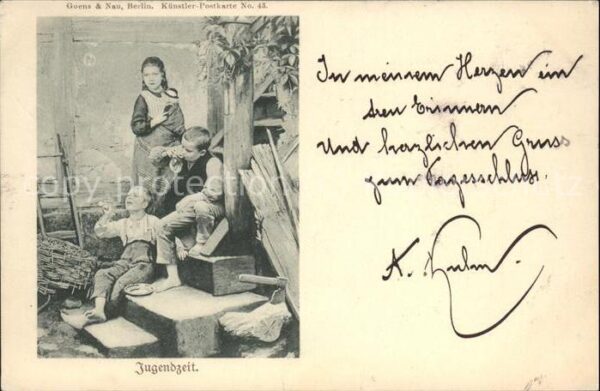 Goens & Nau, Berlin. Künstler-Postkarte No. 43.
In meinem Herzen ein
treu Erinnern
Und herzlichen Gruss
zum Tagesschluss.
Jugendzeit.
copy protection